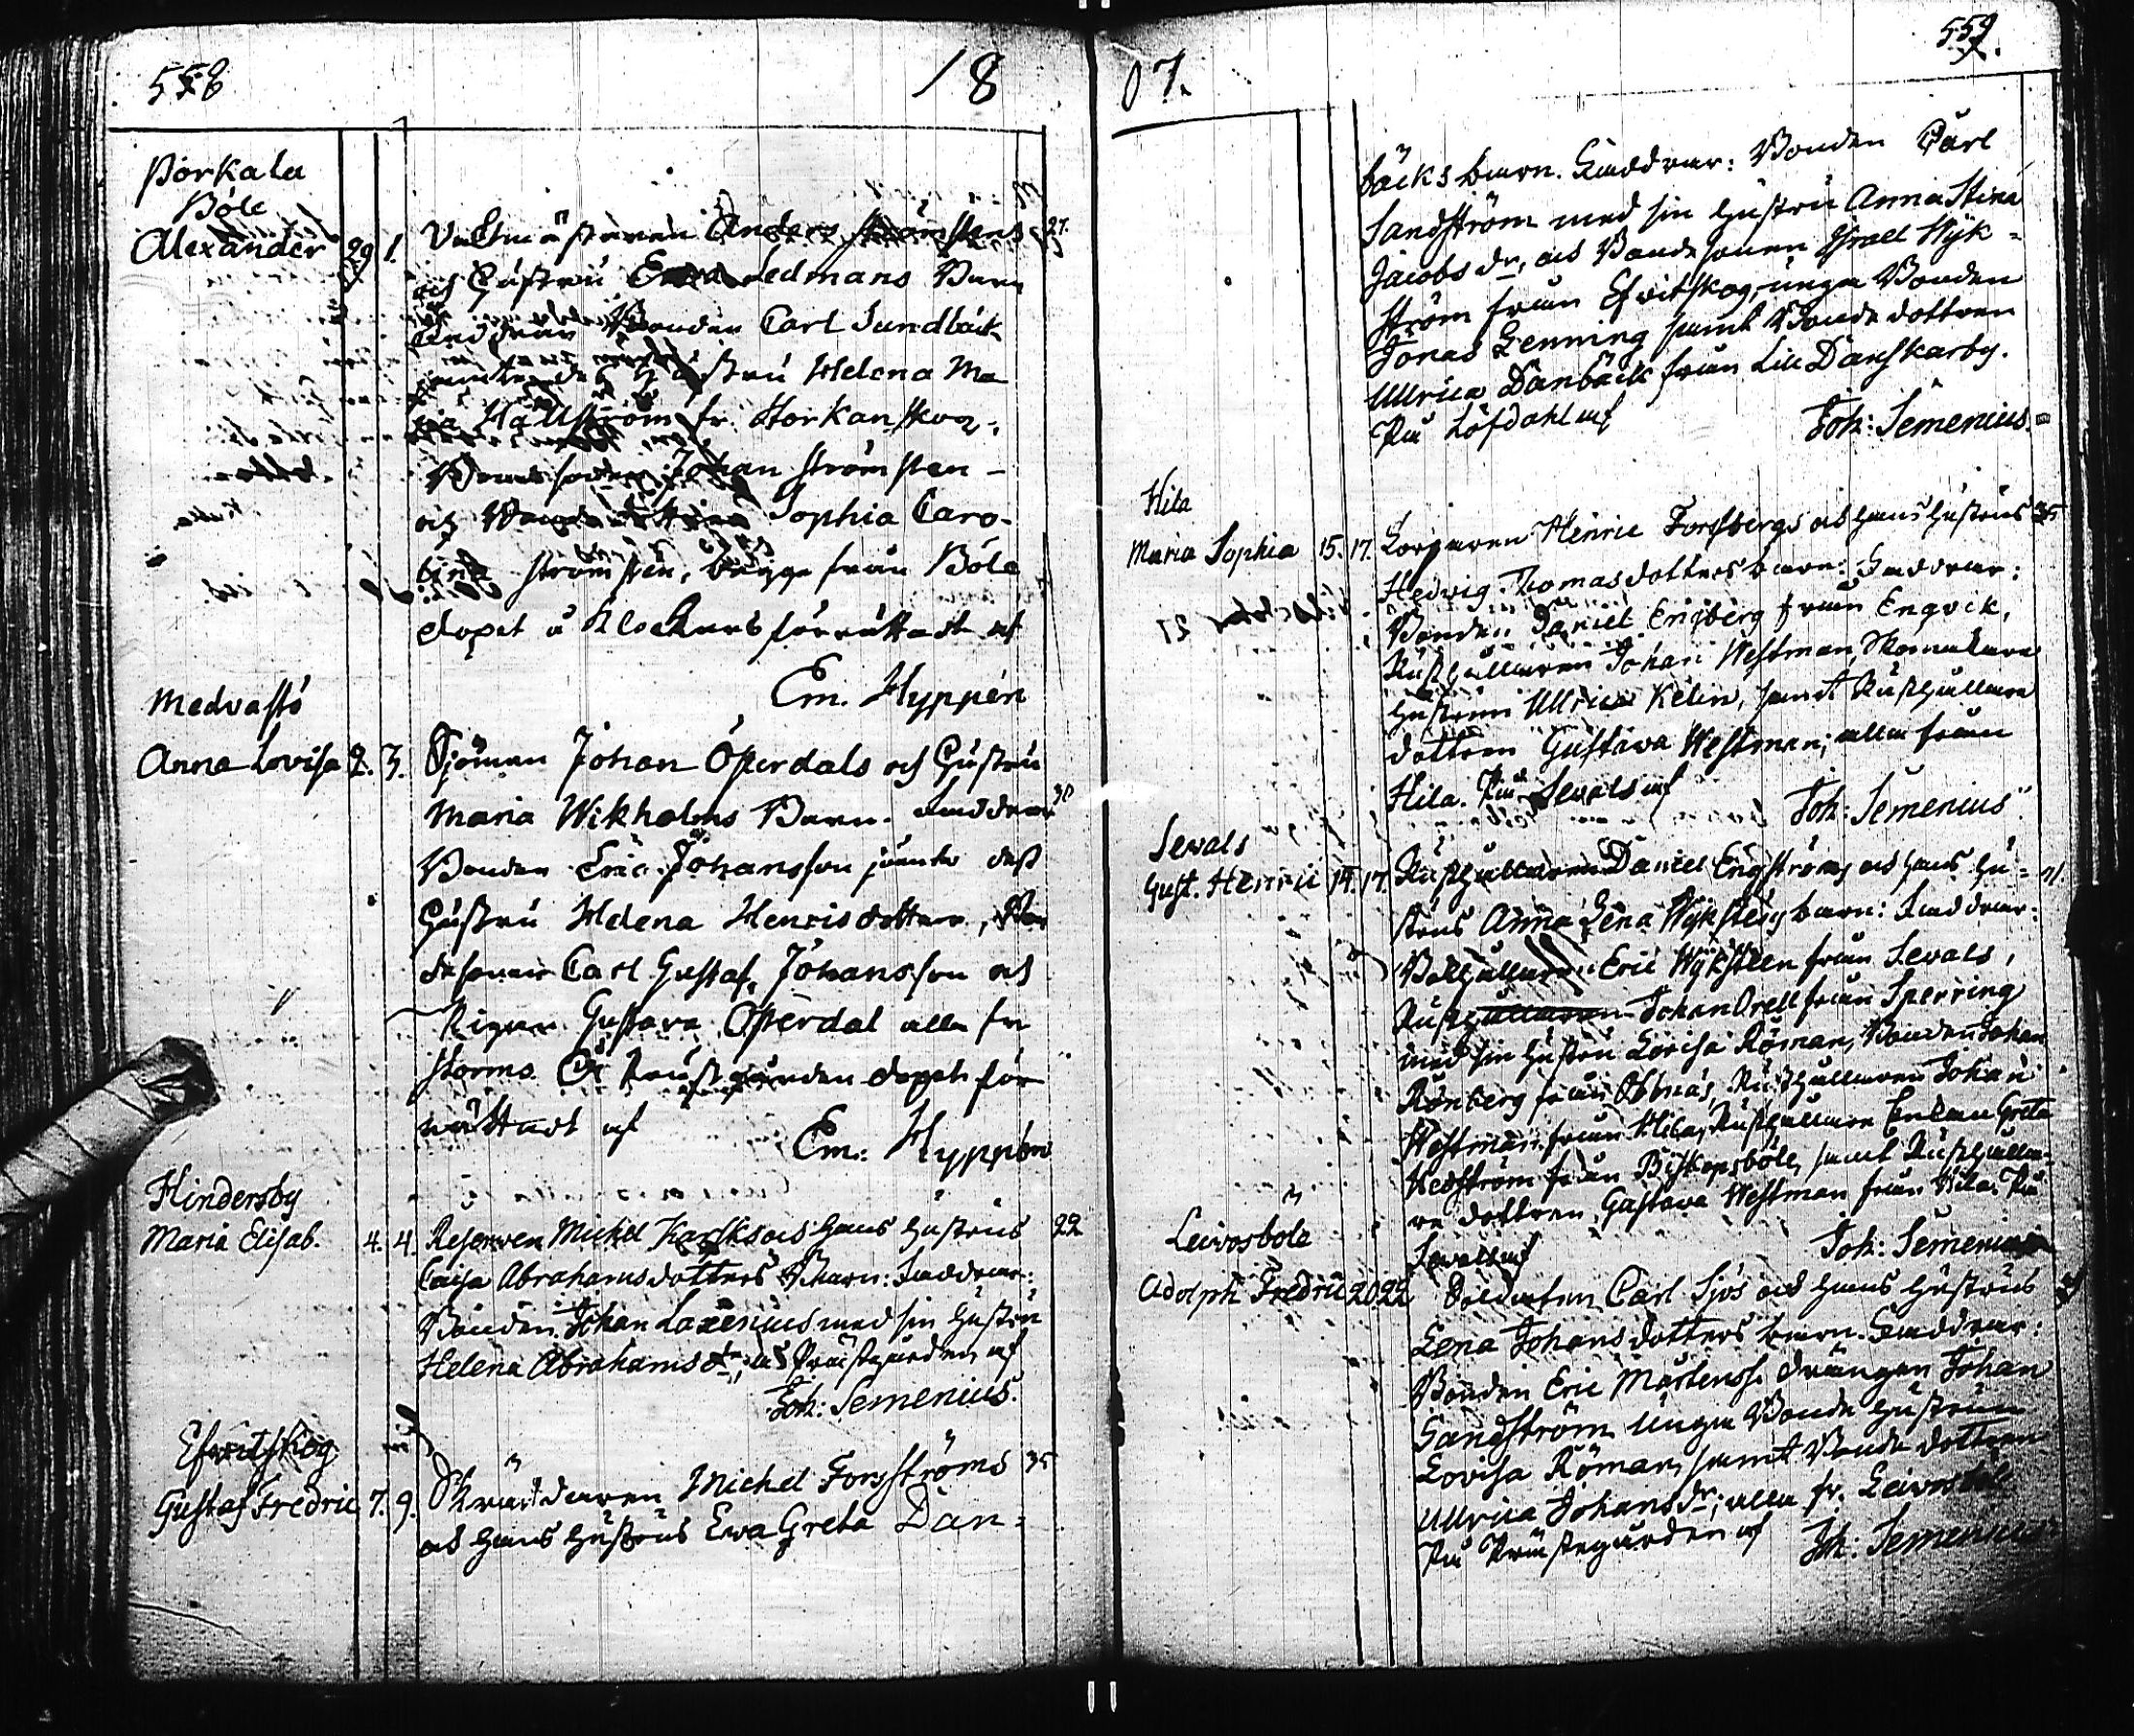 558
18
Porkala
Böle
Alexander 29 1. Vaktmästaren Anders Strömstens 27.
och Hustru Ledmans Barn
Faddrar Bonden Carl Sundbäck
jemte dess Hustru Helena Ma
ria Hällström fr. Störkanskog,
Bondesonen Johan Strömsten
och Bondedottren Sophia Caro-
lina Strömsten, bägge från Böle
dopet å Klockars förrättadt af
Em. Hyppén
Medvastö
Anna Lovisa 2. 3. Sjöman Johan Österdals och Hustru
Maria Wikholms Barn. Faddrar 30
Bonden Eric Johansson jämte dess
Hustru Helena Henricsdotter, Bon
desonen Carl Gustaf Johansson och
Pigan Gustava Österdal alla fr
Storms. Å Prästgården dopet för
rättadt af
Em: Hyppén
Hindersby
Maria Elisab. 4. 4. Reserven Michel Karsks och hans hustrus 22
Caisa Abrahamsdotters Barn: Faddrar:
Bonden Johan Laxenius med sin hustru
Helena Abrahamsdr, å Prästgården af
Joh: Semenius.
Efvitskog
Gustaf Fredric 7. 9. Skräddaren Michel Forsströms 35
och hans hustrus Ewa Greta Dan=
07.
559.
bäcks barn. Faddrar: Bonden Carl
Sandström med sin hustru Anna Stina
Jacobs dr, och Bondesonen Israel Wyk=
ström från Efvitskog, unga Bonden
Jonas Henning samt Bondedottren
Ullrica Danbäck från Lill Danskarby.
På Löfdahl af
Joh: Semenius.
Hila
Maria Sophia 15. 17. Torparen Henric Forssbergs och hans hustrus 35
Hedvig Thomasdotters barn: Faddrar:
Bonden Daniel Engberg från Engvik,
Rusthållaren Johan Westman, Skomakare
hustrun Ullrica Kelin, samt Rusthållare
dottren Gustava Westman; alla från
Hila. På Sevals af
Joh: Semenius.
Sevals
Gust. Henric 14. 17. Rusthållaren Daniel Engströms och hans hu=
strus Anna Lena Wykstens barn: Faddrar:
Bolhållaren Eric Wyksteen från Sevals,
Rusthållaren Johan Orell från Sperring
med sin hustru Lovisa Röman, Bonden Johan
Rönberg från Obbnäs, Rusthållaren Johan
Westman från Hila, Rusthållare Enkan Greta
Hedström från Biskopsböle, samt Rusthålla-
re dottren Gustava Westman från Hila. På
Sevals af
Joh: Semenius
Leivosböle
Adolph Fredric 20 22 Soldaten Carl Sjös och hans hustrus
Lena Johansdotters barn. Faddrar:
Bonden Eric Mårtenss. drängen Johan
Sandström unga Bonde hustrun
Lovisa Röman, samt Bonde dottren
Ullrica Johansdr; alla fr. Leivosböle
På Prästegården af
Joh: Semenius